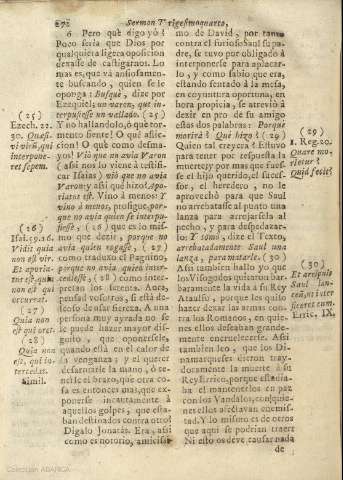 272 Sermon Vigesimoquarto,
6 Pero què digo yò!
Poco seria que Dios por
qualquiera ligera oposicion
dexasse de castigarnos. Lo
mas es, que và ansiosamente
buscando, quien se le
oponga: Busquè, dize por
Ezequiel; un varon, que in-
terpusiesse un vallado. (25)
Y no hallandolo, ò què tor-
mento siente! O què aflic-
cion! O què como desma-
yos! Viò que no avia Varon
(assi nos lo viene à testifi-
car Isaias) viò que no avia
Varon: y assi què hizo? Apo-
riatus est. Vino à menos: Y
vino à menos, prosigue, por-
que no avia quien se interpu-
siesse, (26) que es lo mis-
mo que dezir, porque no
avia quien rogasse, (27)
como traduxo el Pagnino,
porque no avia, quien inter-
cediesse, (28) como inter-
pretan los setenta. Aora,
pensad vosotros, si està de-
seoso de usar fiereza. A una
persona muy ayrada no se
le puede hazer mayor dis-
gusto, que oponersele,
quando està en el calor de
la venganza; y el querer
desarmarle la mano, ò te-
nerle el brazo, que otra co-
sa es entonces mas, que ex-
ponerse incautamente à
aquellos golpes, que esta-
ban destinados contra otro?
Digalo Jonatàs. Era, assi
como es notorio, amicisi-
(25)
Ezech. 22.
30. Quæsi-
vi virũ, qui
interpone-
ret sepem.
(26)
Isai. 59. 16.
Vidit quia
non est vir.
Et aporia-
tus est, quia
non est qui
occurrat.
(27)
Quia non
est qui oret.
(28)
Quia non
est, qui in-
tercedat.
Simil.
mo de David, por tanto
contra el furioso Saul su pa-
dre, se tuvo por obligado à
interponerse para aplacar-
lo, y como sabio que era,
estando sentado à la mesa,
en coyuntura oportuna, en
hora propicia, se atreviò à
dezir en pro de su amigo
estas dos palabras: Porquè
morirà? Què hizo? (29)
Quien tal creyera! Estuvo
para tener por respuesta la
muerte; y por mas que fues-
se el hijo querido, el suces-
sor, el heredero, no le
aprovechò para que Saul
no arrebatasse al punto una
lanza para arrojarsela al
pecho, y para despedazar-
lo: Y tomò, dize el Texto,
arrebatadamente Saul una
lanza, para matarle. (30)
Assi tambien hallo yo que
los Visogodos quitaron bar-
baramente la vida à su Rey
Ataulfo, porque les quiso
hazer dexar las armas con-
tra los Romanos, en quie-
nes ellos deseaban grande-
mente encruelecerse. Assi
tambien leo, que los Di-
namarqueses dieron tray-
doramente la muerte à su
Rey Errico, porque estudia-
ba el mantenerlos en paz
con los Vandalos, con quie-
nes ellos afectavan enemis-
tad. Y lo mismo es de otros
que aqui se podrian traer:
Ni esto os deve causar nada
de
(29)
1. Reg. 20.
Quare mo-
rietur?
Quid fecit?
(30)
Et arripuit
Saul lan-
ceã, ut inter-
ficeret eum.
Erric. IX.
Colección ABARCA